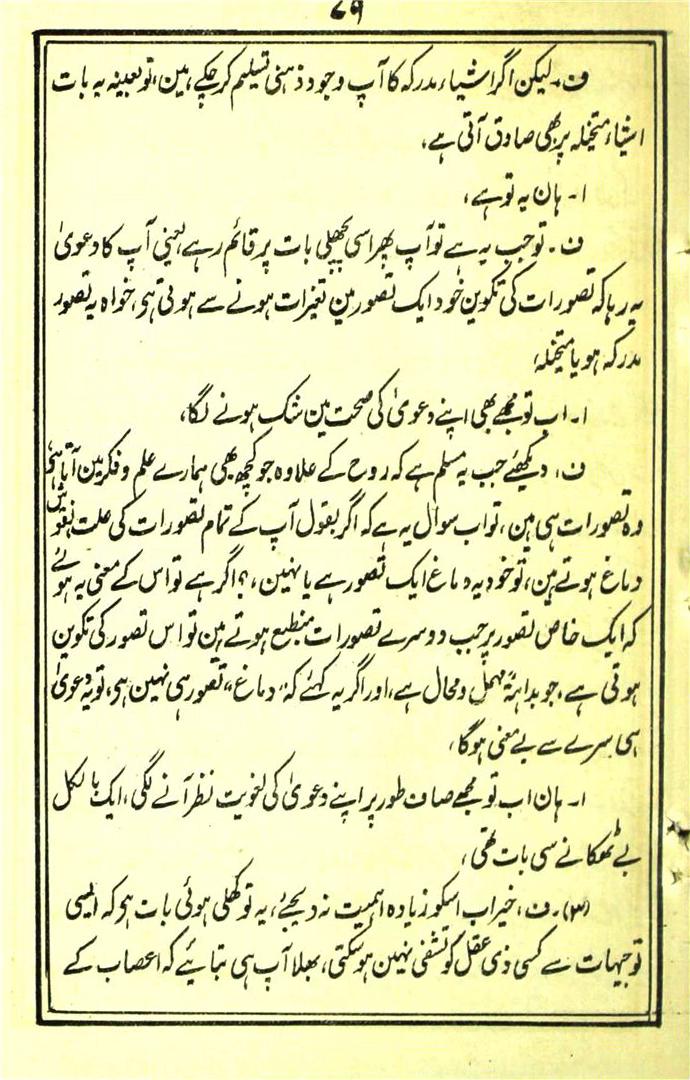 ۷۹
ف۔ لیکن اگر اشیاء مدرکہ کا آپ وجود ذہنی تسلیم کر چکے ہین، تو بعینہ یہ بات
اشیاء متخیلہ پر بھی صادق آتی ہے،
ا۔ ہان یہ تو ہے،
ف۔ تو جب یہ ہے تو آپ پھر اسی پچھلی بات پر قائم رہے، یعنی آپ کا دعویٰ
یہ رہا کہ تصورات کی تکوین خود ایک تصور مین تغیرات ہونے سے ہوتی ہی، خواہ یہ تصور
مدرکہ ہو یا متخیلہ،
ا۔ اب تو مجھے بھی اپنے دعویٰ کی صحت مین شک ہونے لگا،
ف، دیکھئے جب یہ مسلم ہے کہ روح کے علاوہ جو کچھ بھی ہمارے علم و فکر مین آتا ہی
وہ تصورات ہی ہین، تو اب سوال یہ ہے کہ اگر بقول آپ کے تمام تصورات کی علت نقوش
دماغ ہوتے ہین، تو خود یہ دماغ ایک تصور ہے یا نہین،؟ اگر ہے تو اس کے معنی یہ ہوئے
کہ ایک خاص تصور پر جب دوسرے تصورات منطبع ہوتے ہین تو اس تصور کی تکوین
ہوتی ہے، جو بداہۃً مہمل و محال ہے، اور اگر یہ کہئے کہ "دماغ" تصور ہی نہین ہی، تو یہ دعویٰ
ہی سرے سے بے معنی ہوگا،
ا۔ ہان اب تو مجھے صاف طور پر اپنے دعویٰ کی لغویت نظر آنے لگی، ایک بالکل
بے ٹھکانے سی بات تھی،
(۳)۔ ف، خیر اب اسکو زیادہ اہمیت نہ دیجئے، یہ تو کھلی ہوئی بات ہی کہ ایسی
توجیہات سے کسی ذی عقل کو تشفی نہین ہو سکتی، بھلا آپ ہی بتایئے کہ اعصاب کے